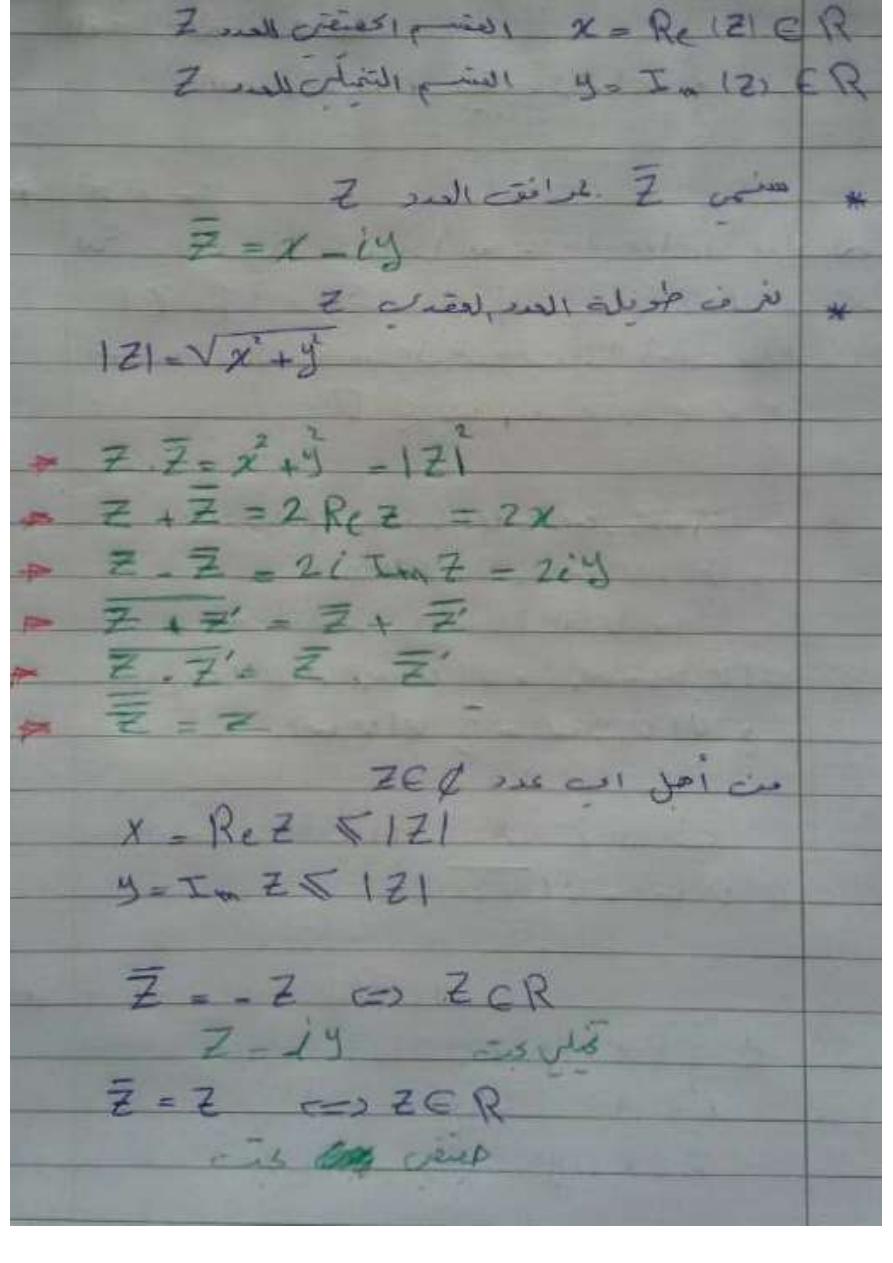 x = Re(Z) ∈ R القسم الحقيقي للعدد Z
y = Im(Z) ∈ R القسم التخيلي للعدد Z
* سنسمي Z̄ مرافق العدد Z
Z̄ = x - iy
* نعرف طويلة العدد العقدي Z
|Z| = √(x² + y²)
Z . Z̄ = x² + y² = |Z|²
Z + Z̄ = 2 Re Z = 2x
Z - Z̄ = 2i Im Z = 2iy
\overline{Z + Z'} = Z̄ + Z̄'
\overline{Z . Z'} = Z̄ . Z̄'
\overline{Z̄} = Z
من أجل اي عدد Z ∈ ₵
x = Re Z ⩽ |Z|
y = Im Z ⩽ |Z|
Z̄ = - Z ⇔ Z ∈ R
Z = iy تخيلي بحت
Z̄ = Z ⇔ Z ∈ R
حقيقي بحت